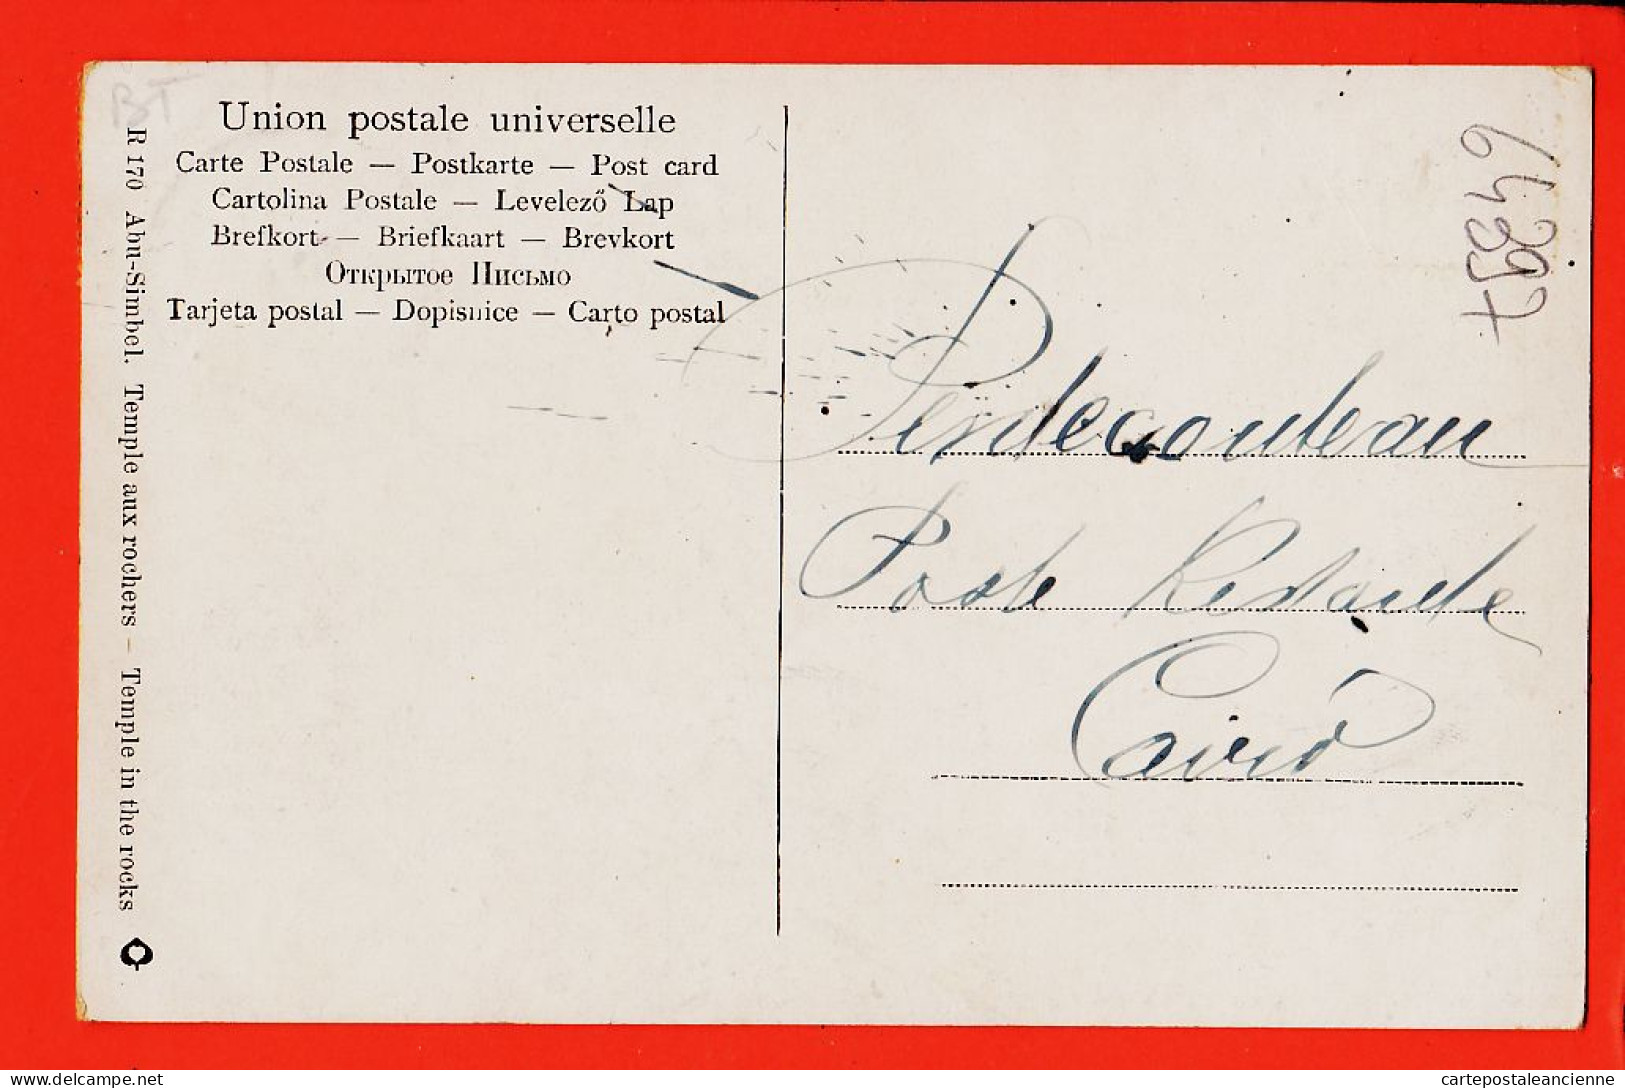 BT
Union postale universelle
Carte Postale — Postkarte — Post card
Cartolina Postale — Levelező Lap
Brefkort — Briefkaart — Brevkort
Открытое Письмо
Tarjeta postal — Dopisnice — Carto postal
R 170 Abu-Simbel. Temple aux rochers – Temple in the rocks
Perdecouteau
Poste Restante
Cairo
64397
delcampe.net
cartepostaleancienne